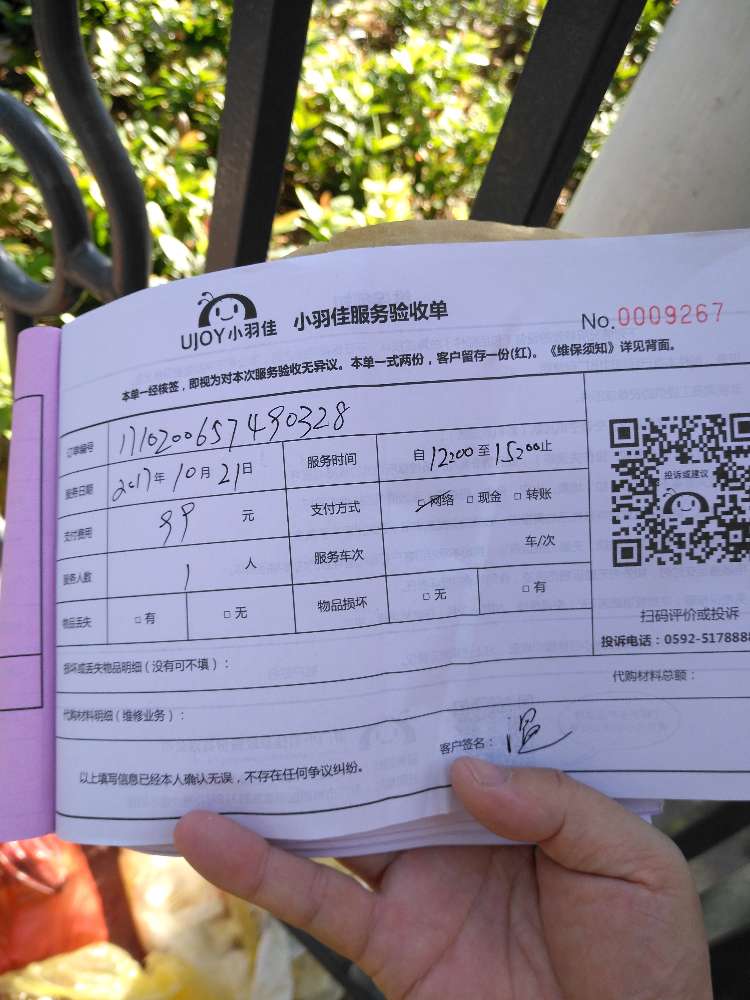 UJOY小羽佳 小羽佳服务验收单 No.0009267
本单一经核签，即视为对本次服务验收无异议。本单一式两份，客户留存一份(红)。《维保须知》详见背面。
订单编号 171020065749 0328
服务日期 2017年10月21日 服务时间 自12:00至15:00止
支付费用 99 元 支付方式 □网络 □现金 □转账
服务人数 1 人 服务车次 车/次
物品丢失 □有 □无 物品损坏 □无 □有
投诉或建议
扫码评价或投诉
投诉电话：0592-5178888
损坏或丢失物品明细（没有可不填）：
代购材料明细（维修业务）： 代购材料总额：
以上填写信息已经本人确认无误，不存在任何争议纠纷。 客户签名：温